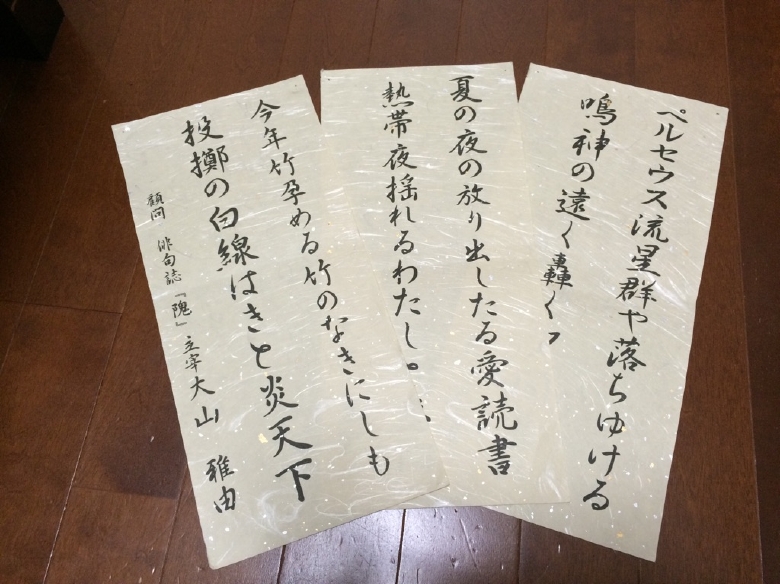 ペルセウス流星群や落ちゆける
鳴神の遠く轟く
夏の夜の放り出したる愛読書
熱帯夜揺れるわたし。
今年竹孕める竹のなきにしも
投擲の白線はきと炎天下
顧問 俳句誌『隗』主宰 大山 雅由